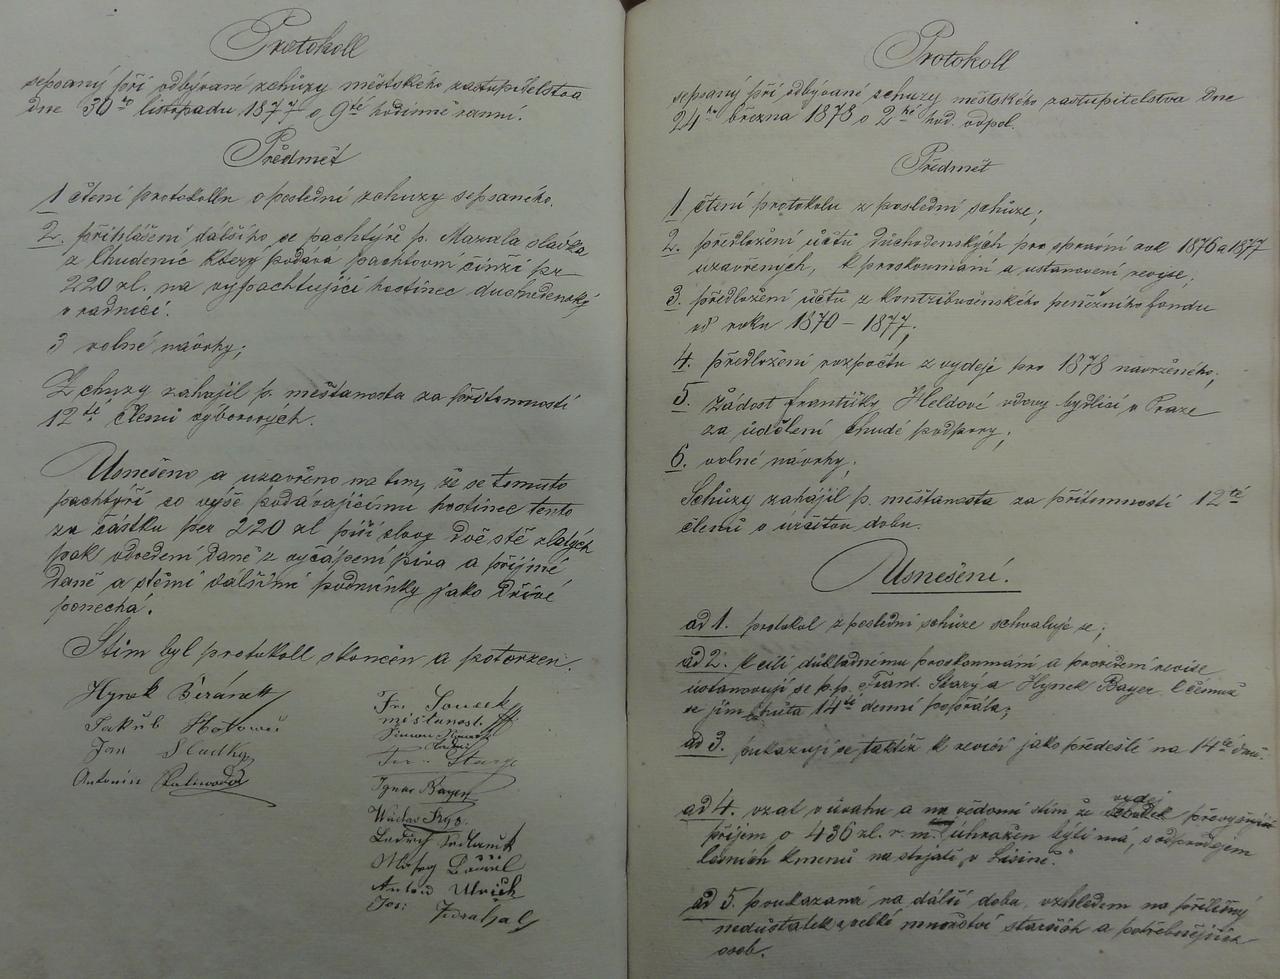 Protokoll
sepsaný při odbývané schůzy městského zastupitelstva
dne 30ho listopadu 1877 o 9té hodinně ranní.
Předmět
1 čtení protokollu o poslední schuzy sepsaného.
2. přihlášení dalšího se pachtýře p. Mazala slávka
z Chudenic který podává pachtovní činži pr
220 zl. na vypachtující hostinec duchodenský
v radnici.
3 volné návrhy;
Schuzy zahájil p. měšťanosta za přítomností
12té členů výborových.
Usnešeno a uzavřeno na tím, že se tomuto
pachtýři co výše podávajícímu hostinec tento
za částku per 220 zl píši slovy dvě stě zlatých
pak odvedení daně z vyčápení piva a příjmé
daně a stěmi dalšími podmínky jako dříve
ponechá.
Stím byl protokoll skončen a potvrzen.
Hynek Beránek
Jakub
Jan Sladký
Antonín
Fr. Soucek
měštanost.
Fr. Starý
Ignac Bayer
Václav
Ludvík
Antonín Ulrich
Jos:
Protokoll
sepsaný při odbývané schůzy městského zastupitelstva dne
24ho března 1878 o 2hé hod. odpol.
Předmět
1 čtení protokolu z poslední schůze;
2. předložení účtů důchodenských pro správní rok 1876 a 1877
uzavřených, k proskoumání a ustanovení revise;
3. předložení účtu z kontribučenského peněžního fondu
od roku 1870 – 1877;
4. předložení rozpočtu z vydejě pro 1878 navrženého;
5. Žádost Františky Heldové vdovy bydlící v Praze
za udělení chudé podpory;
6. volné návrhy;
Schůzy zahájil p. měšťanosta za přítomností 12té
členů v určitou dobu.
Usnešení.
ad 1. protokol z poslední schůze schvaluje se;
ad 2. k cíli důkladnému proskoumání a provedení revise
ustanovují se p.p. Frant. Starý a Hynek Bayer, k čemuž
se jim lhůta 14té denní popřála;
ad 3. pukazují se taktéž k revisi jako předešlé na 14té dnů.
ad 4. vzat v úvahu a na vědomí stím že vydej převyšující
příjem o 436 zl. r. m. uhražen býti má, s odprodejem
lesních kmenů na stojatě v Lisině."
ad 5. poukazaná na dálší dobu, vzhledem na přílišný
nedostatek a velké množství starších a potřebnějších
osob.